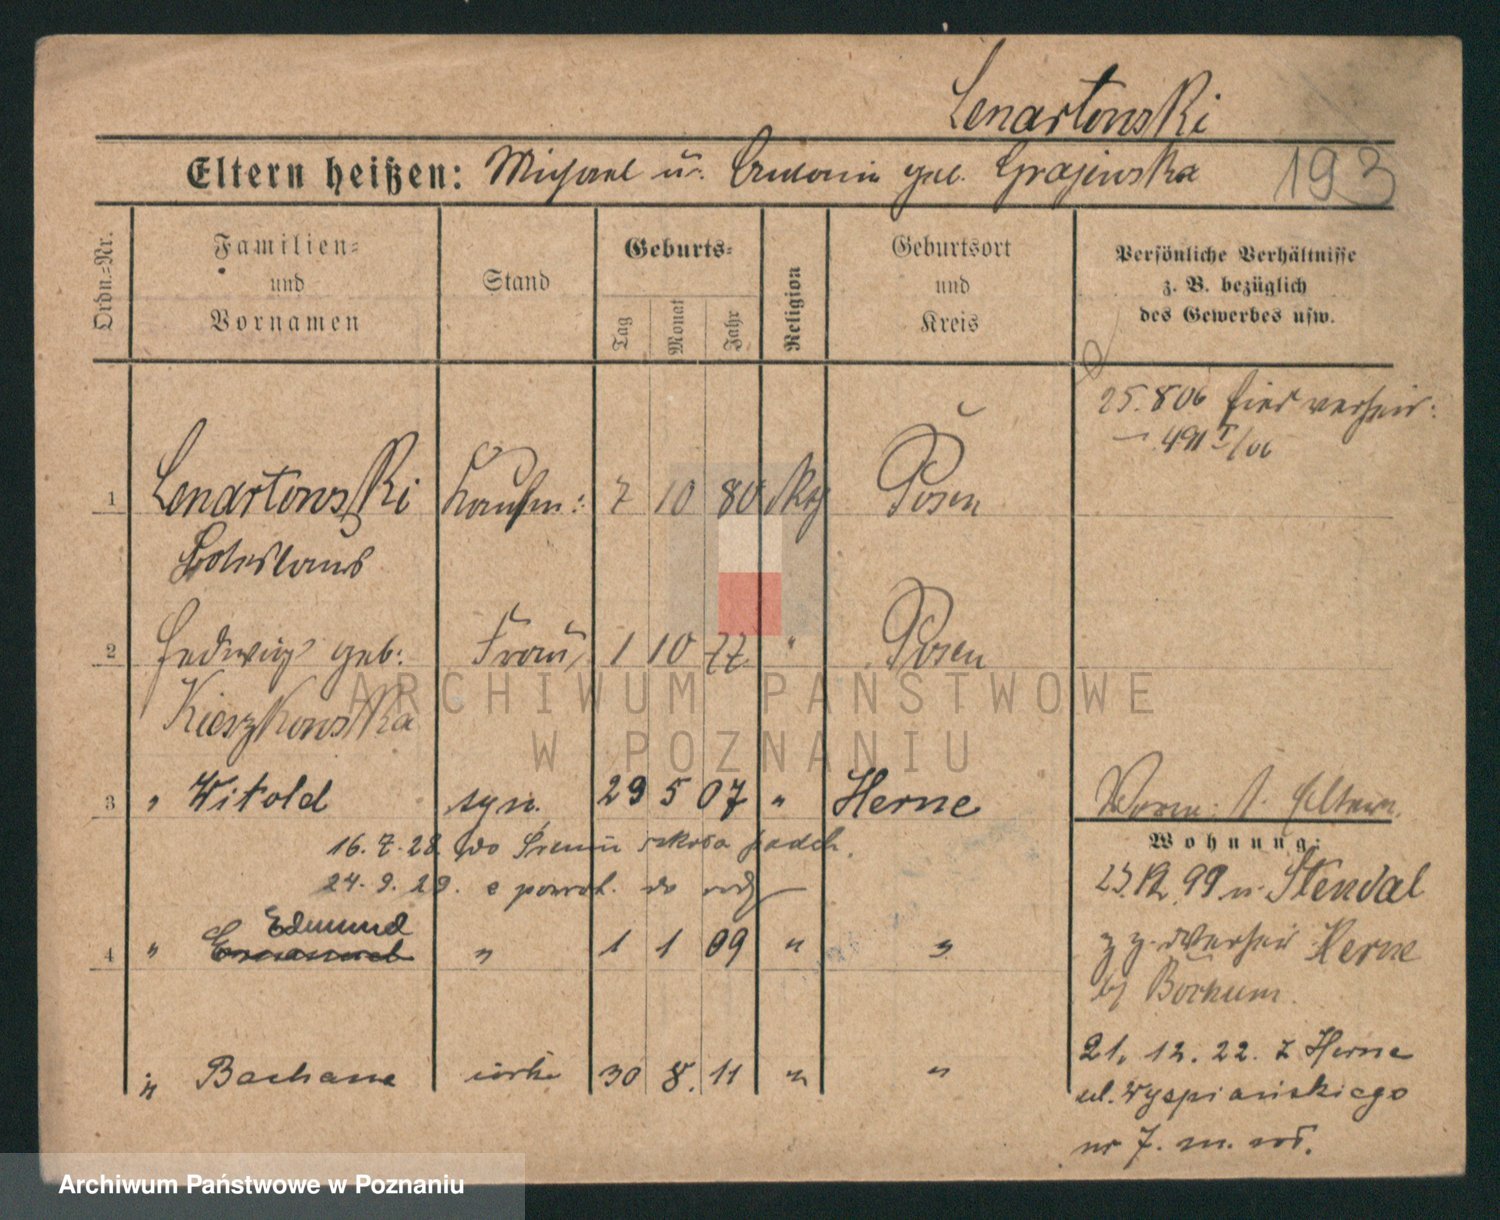 Lenartowski
Eltern heißen: Michael u. geb. Grajewska 193
Ordn.-Nr.
Familien-
und
Vornamen
Stand
Geburts-
Tag
Monat
Jahr
Religion
Geburtsort
und
Kreis
Persönliche Verhältnisse
z. B. bezüglich
des Gewerbes usw.
25.8 06 hier verheir:
1 Lenartowski Kaufm: 7 10 80 Posen
Boleslaus
2 Hedwig geb: Frau 1 10 77 " Posen
Kieszkowska
3 " Witold syn. 29 5 07 " Herne
Worm: s. Eltern.
16. 7. 28 do Śremu szkoła podch.
24. 9. 29. z powrot. do
Wohnung:
99 v. Stendal
Edmund
4 " " 1 1 09 " "
z. Z. Herne
b/ Bochum.
" Barbara córka 30 8. 11 " "
21. 12. 22. z Herne
ul. Wyspiańskiego
nr 7. m. wł.
ARCHIWUM PAŃSTWOWE
W POZNANIU
Archiwum Państwowe w Poznaniu